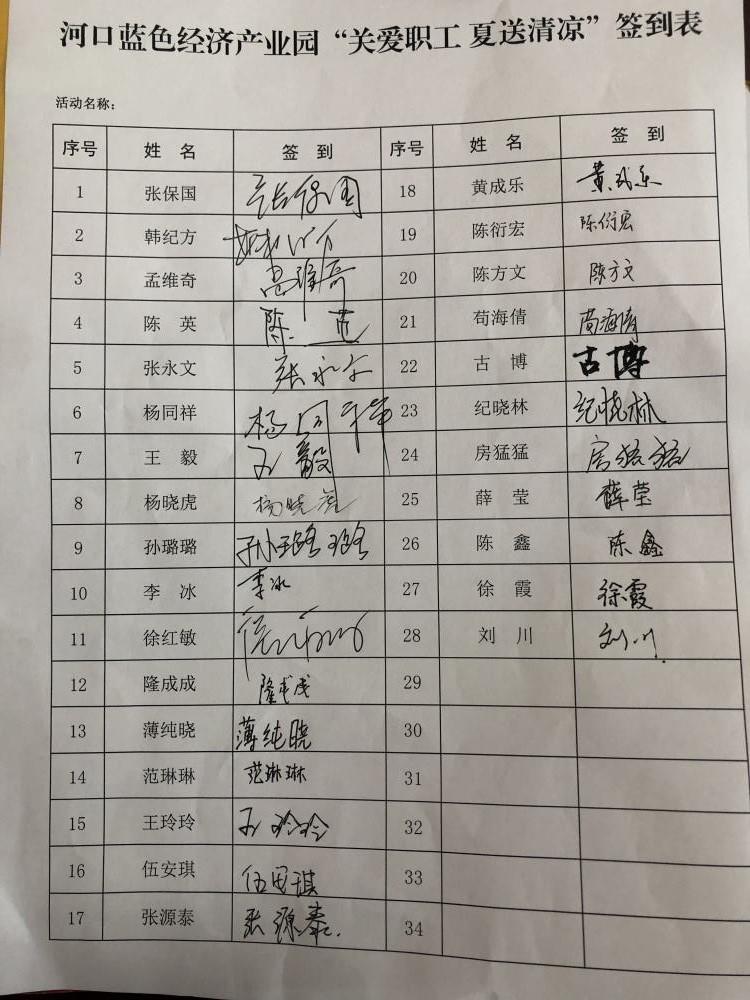 河口蓝色经济产业园“关爱职工 夏送清凉”签到表
活动名称：
序号 姓 名 签 到 序号 姓 名 签 到
1 张保国 张保国 18 黄成乐 黄成乐
2 韩纪方 19 陈衍宏 陈衍宏
3 孟维奇 孟维奇 20 陈方文 陈方文
4 陈 英 陈英 21 苟海倩 苟海倩
5 张永文 张永文 22 古 博 古博
6 杨同祥 杨同祥 23 纪晓林 纪晓林
7 王 毅 王毅 24 房猛猛 房猛猛
8 杨晓虎 杨晓虎 25 薛 莹 薛莹
9 孙璐璐 孙璐璐 26 陈 鑫 陈鑫
10 李 冰 李冰 27 徐 霞 徐霞
11 徐红敏 28 刘 川 刘川
12 隆成成 隆成成 29
13 薄纯晓 薄纯晓 30
14 范琳琳 范琳琳 31
15 王玲玲 王玲玲 32
16 伍安琪 伍安琪 33
17 张源泰 张源泰 34